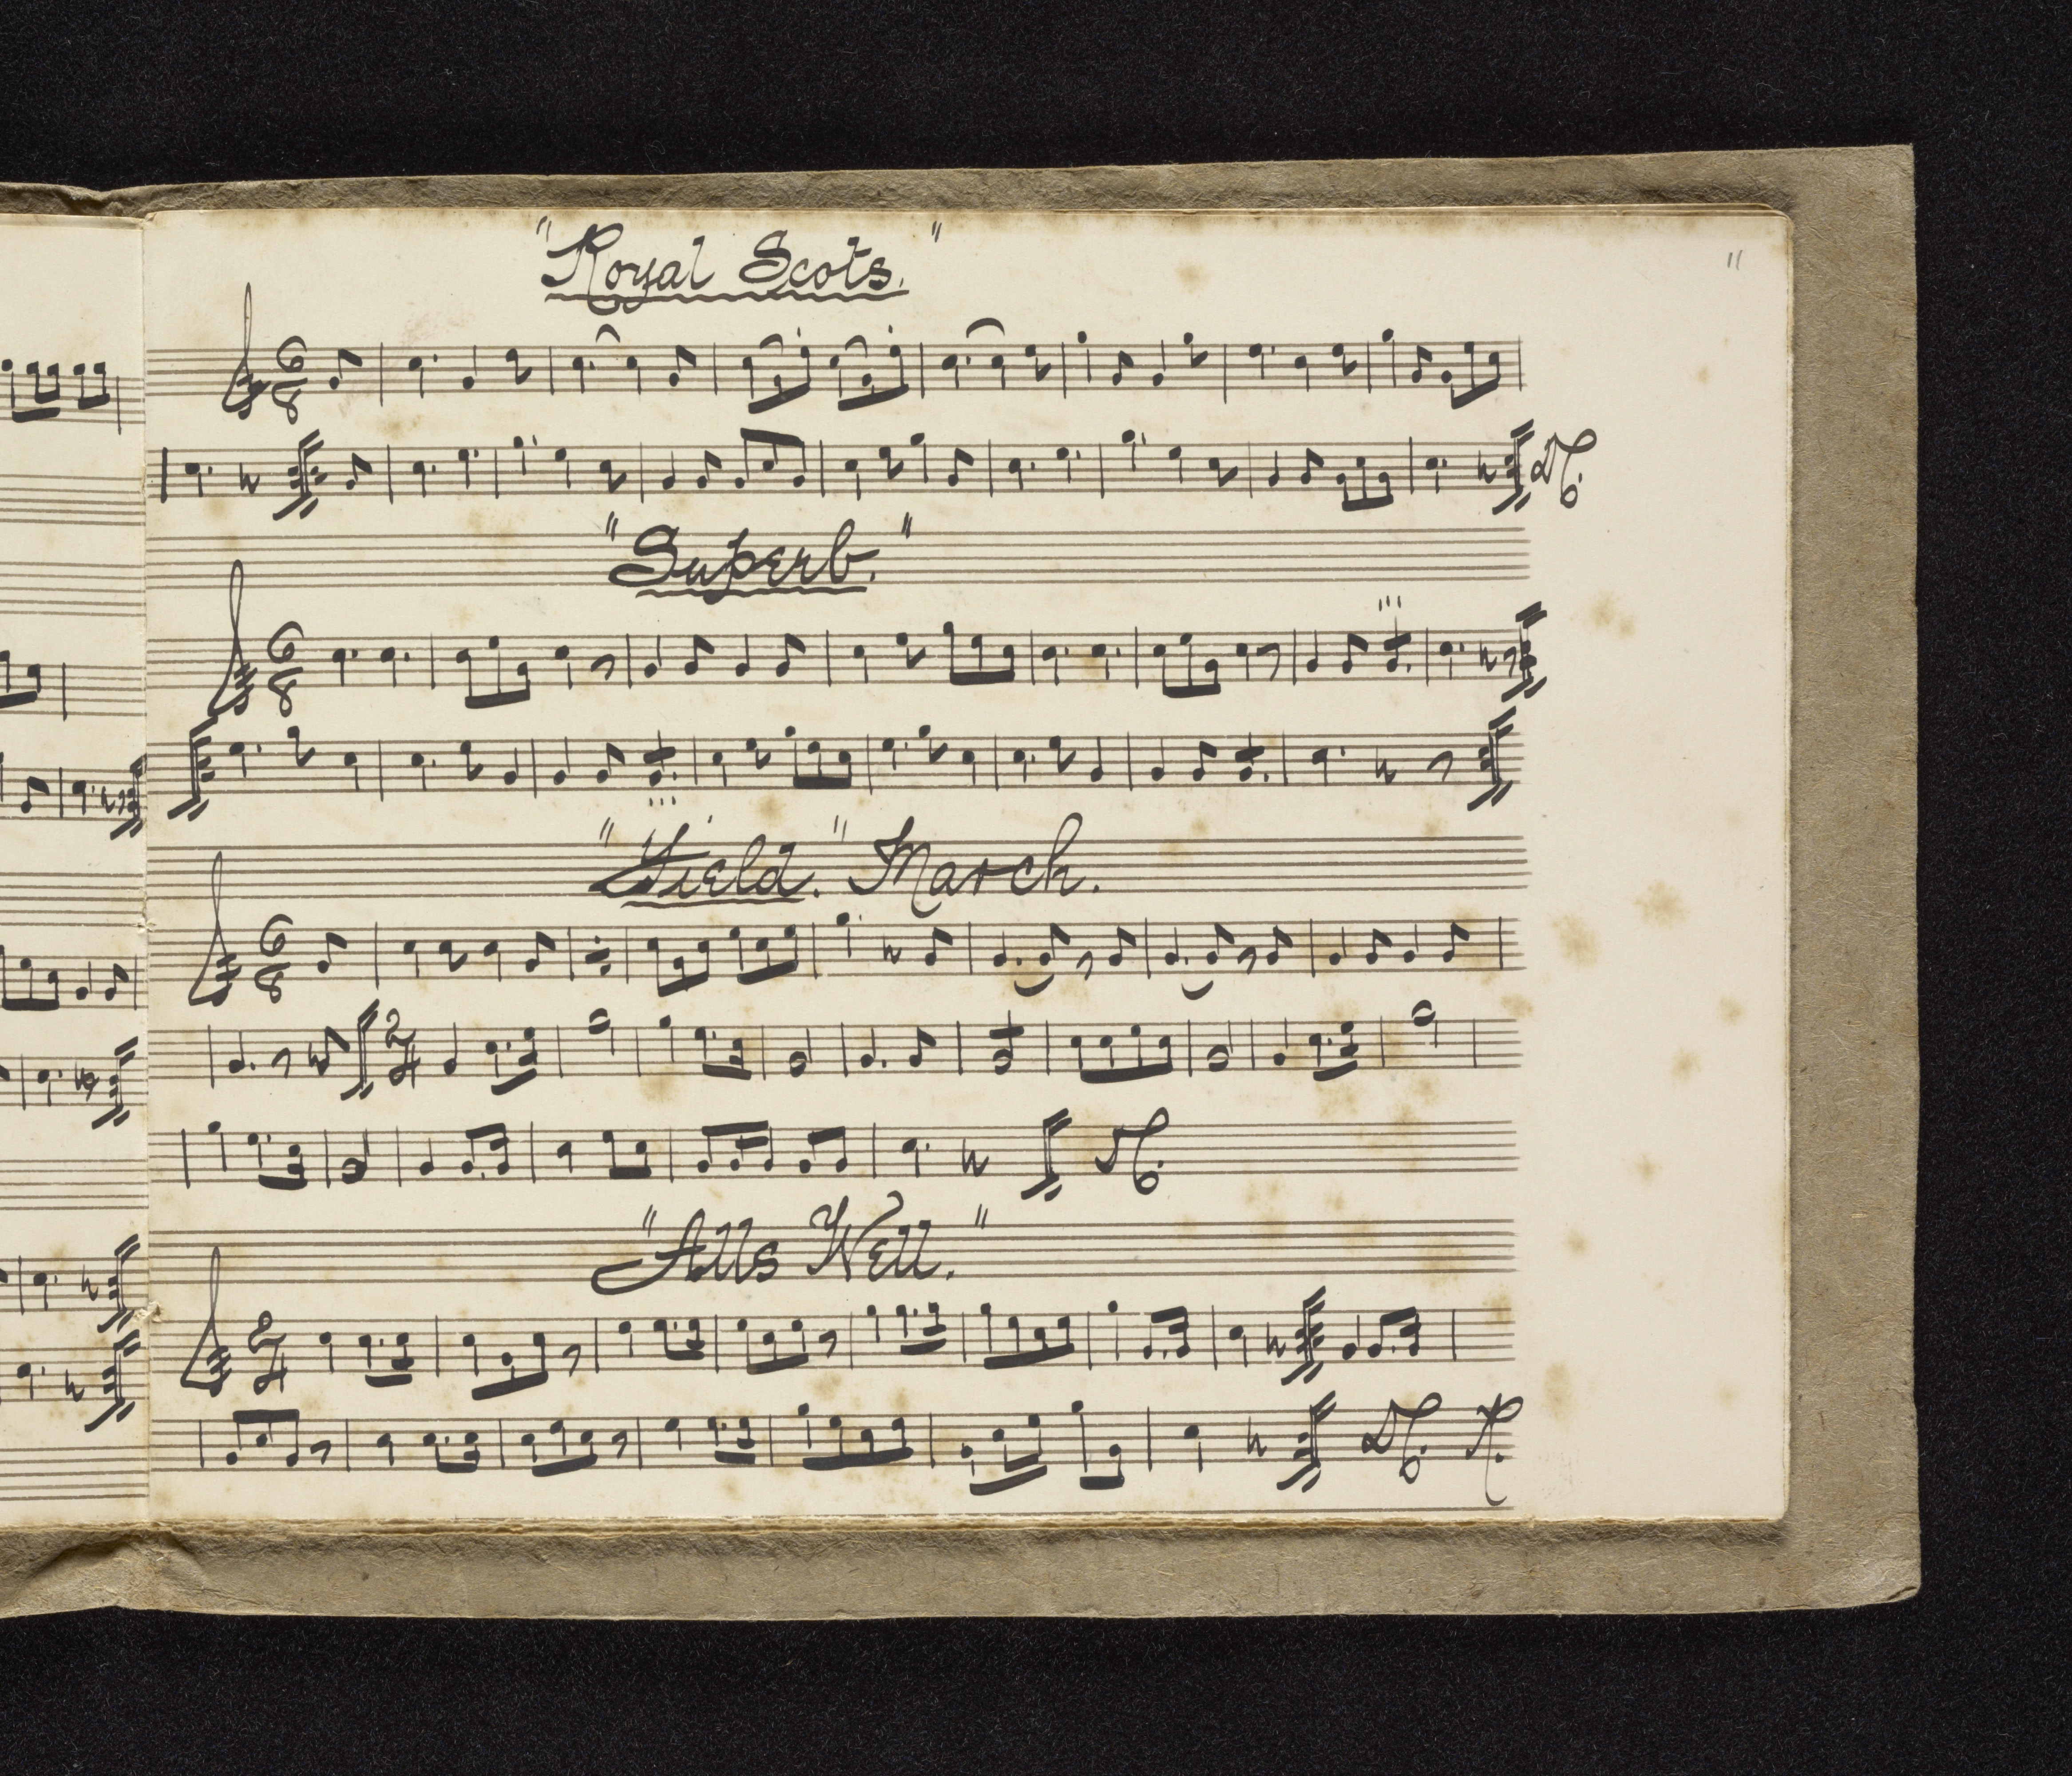 11
"Royal Scots."
6
8
D.C.
"Superb."
6
8
"Field." March.
6
8
2
4
D.C.
"Alls Well."
2
4
D.C.